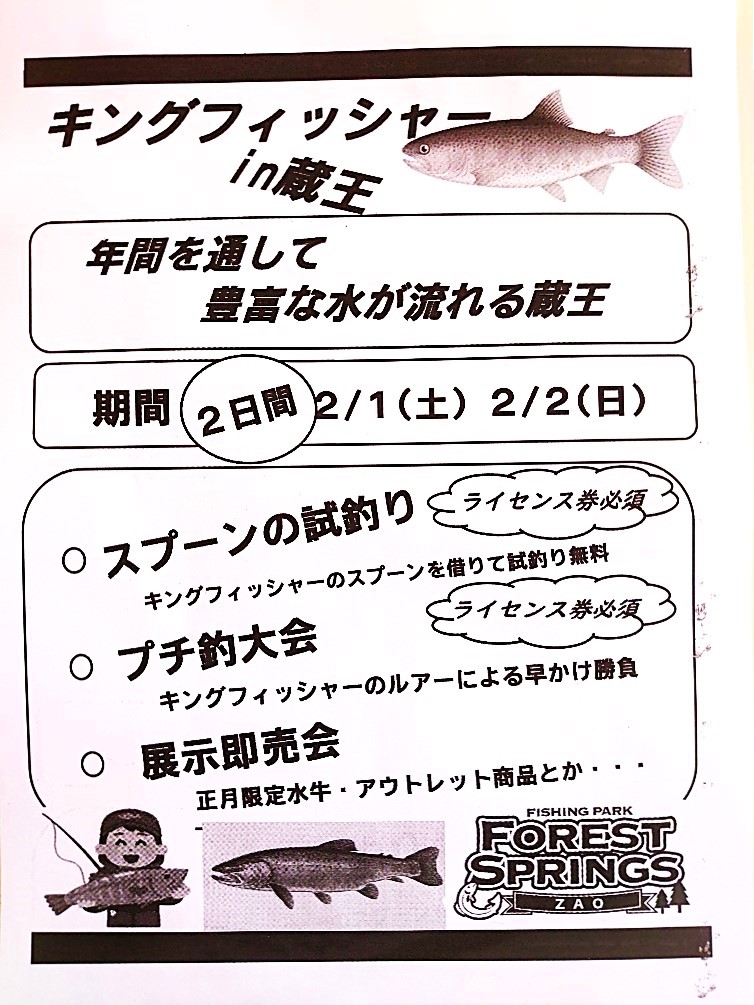 キングフィッシャー
in蔵王
年間を通して
豊富な水が流れる蔵王
期間 2日間 2/1(土) 2/2(日)
○ スプーンの試釣り ライセンス券必須
キングフィッシャーのスプーンを借りて試釣り無料
○ プチ釣大会 ライセンス券必須
キングフィッシャーのルアーによる早かけ勝負
○ 展示即売会
正月限定水牛・アウトレット商品とか・・・
FISHING PARK
FOREST
SPRINGS
ZAO